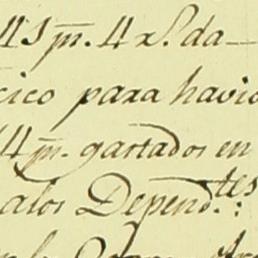 41 pͫ. 4 rˢ. da
cico para havio
4 pͫ. gastados en
alos Depend.ᵗᵉˢ: